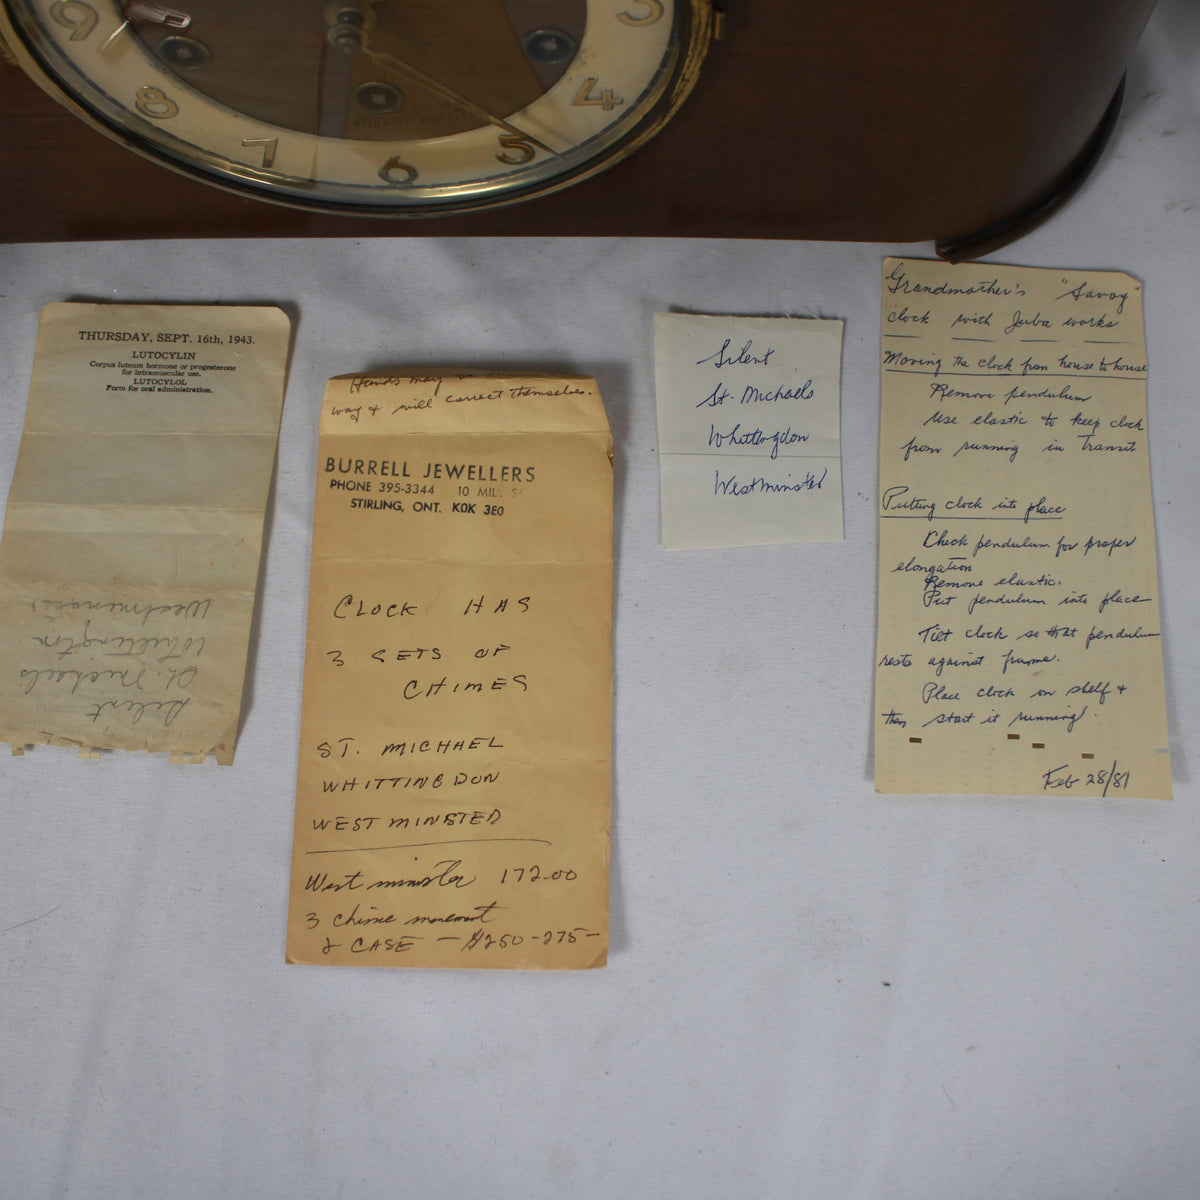 9
8
7
6
5
4
3
THURSDAY, SEPT. 16th, 1943.
LUTOCYLIN
Corpus luteum hormone or progesterone
for intramuscular use.
LUTOCYLOL
Form for oral administration.
Westminster
Whittington
St. Michaels
Silent
Hands may
way & will correct themselves.
BURRELL JEWELLERS
PHONE 395-3344 10 MILL
STIRLING, ONT. K0K 3E0
CLOCK HAS
3 SETS OF
CHIMES
ST. MICHAEL
WHITTINGDON
WESTMINSTED
Westminster 172.00
3 chime movement
& CASE - $250-275-
Silent
St. Michaels
Whittingdon
Westminsted
Grandmother's "Savoy"
clock with Juba works
Moving the clock from house to house
Remove pendulum
Use elastic to keep clock
from running in transit
Putting clock into place
Check pendulum for proper
elongation
Remove elastic.
Put pendulum into place
Tilt clock so that pendulum
rests against frame.
Place clock on shelf &
then start it running.
Feb 28/81